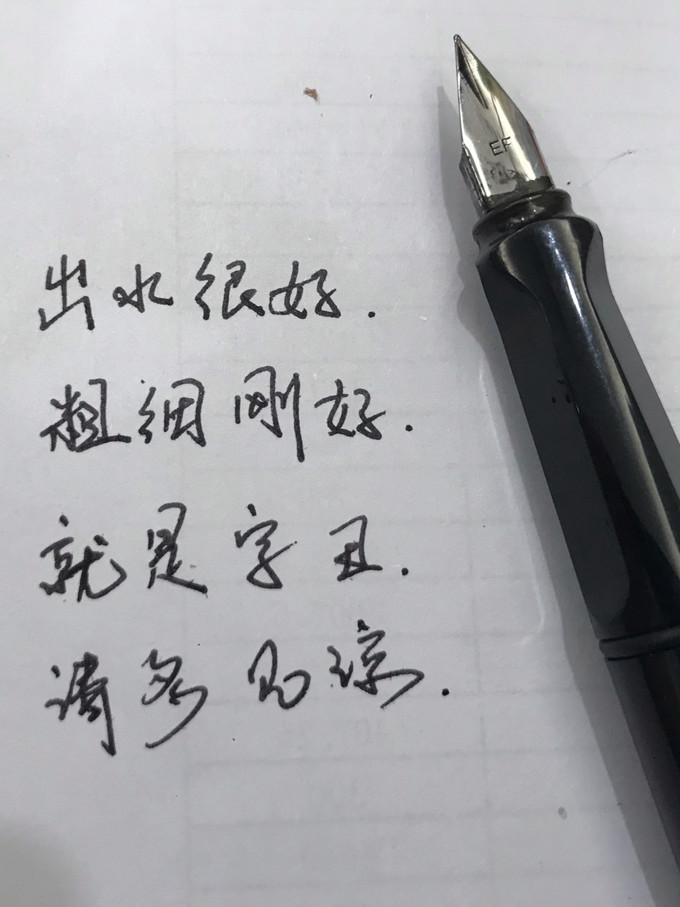 EF
出水很好.
粗细刚好.
就是字丑.
请多见谅.